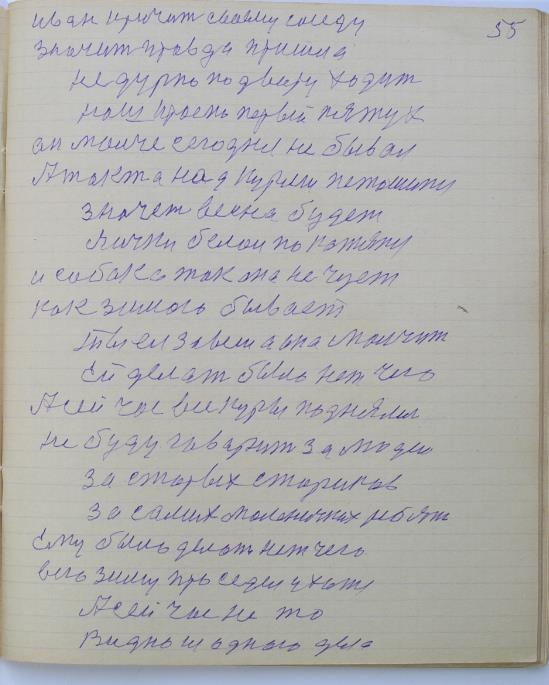 55
иван кричит своему соседу
значит правда пришла
не дурно по двару ходит
наш красно первый пятух
он молче сегодня не бывал
А так та над курями петошипу
значет весна будет
яички белои по катяту
и собака так она не чует
как зимого бывает
Ты ей завеш а она молчит
Ей делат было нет чего
А сей час все куры поднялис
не буду гаварит за модею
за старых стариков
за самих малоничких ребят
Ему было делат нет чего
всю зиму про седел у хаты
А сей час не то
Видно ш одного дела